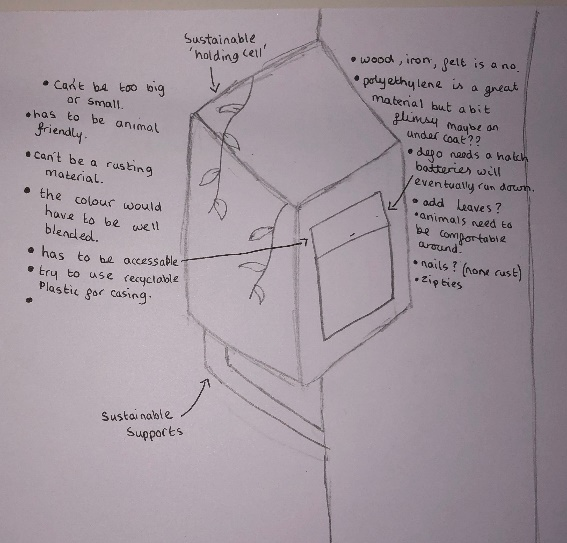 Sustainable
'holding cell'
• Can't be too big
or small.
• has to be animal
friendly.
• can't be a rusting
material.
• the colour would
have to be well
blended.
• has to be accessable
• try to use recyclable
Plastic for casing.
•
• wood, iron, felt is a no.
• polyethylene is a great
material but a bit
flimsy maybe an
under coat??
• defo needs a hatch
batteries will
eventually run down.
• add leaves?
• animals need to
be comfortable
around.
• nails? (none rust)
• zip ties
Sustainable
Supports